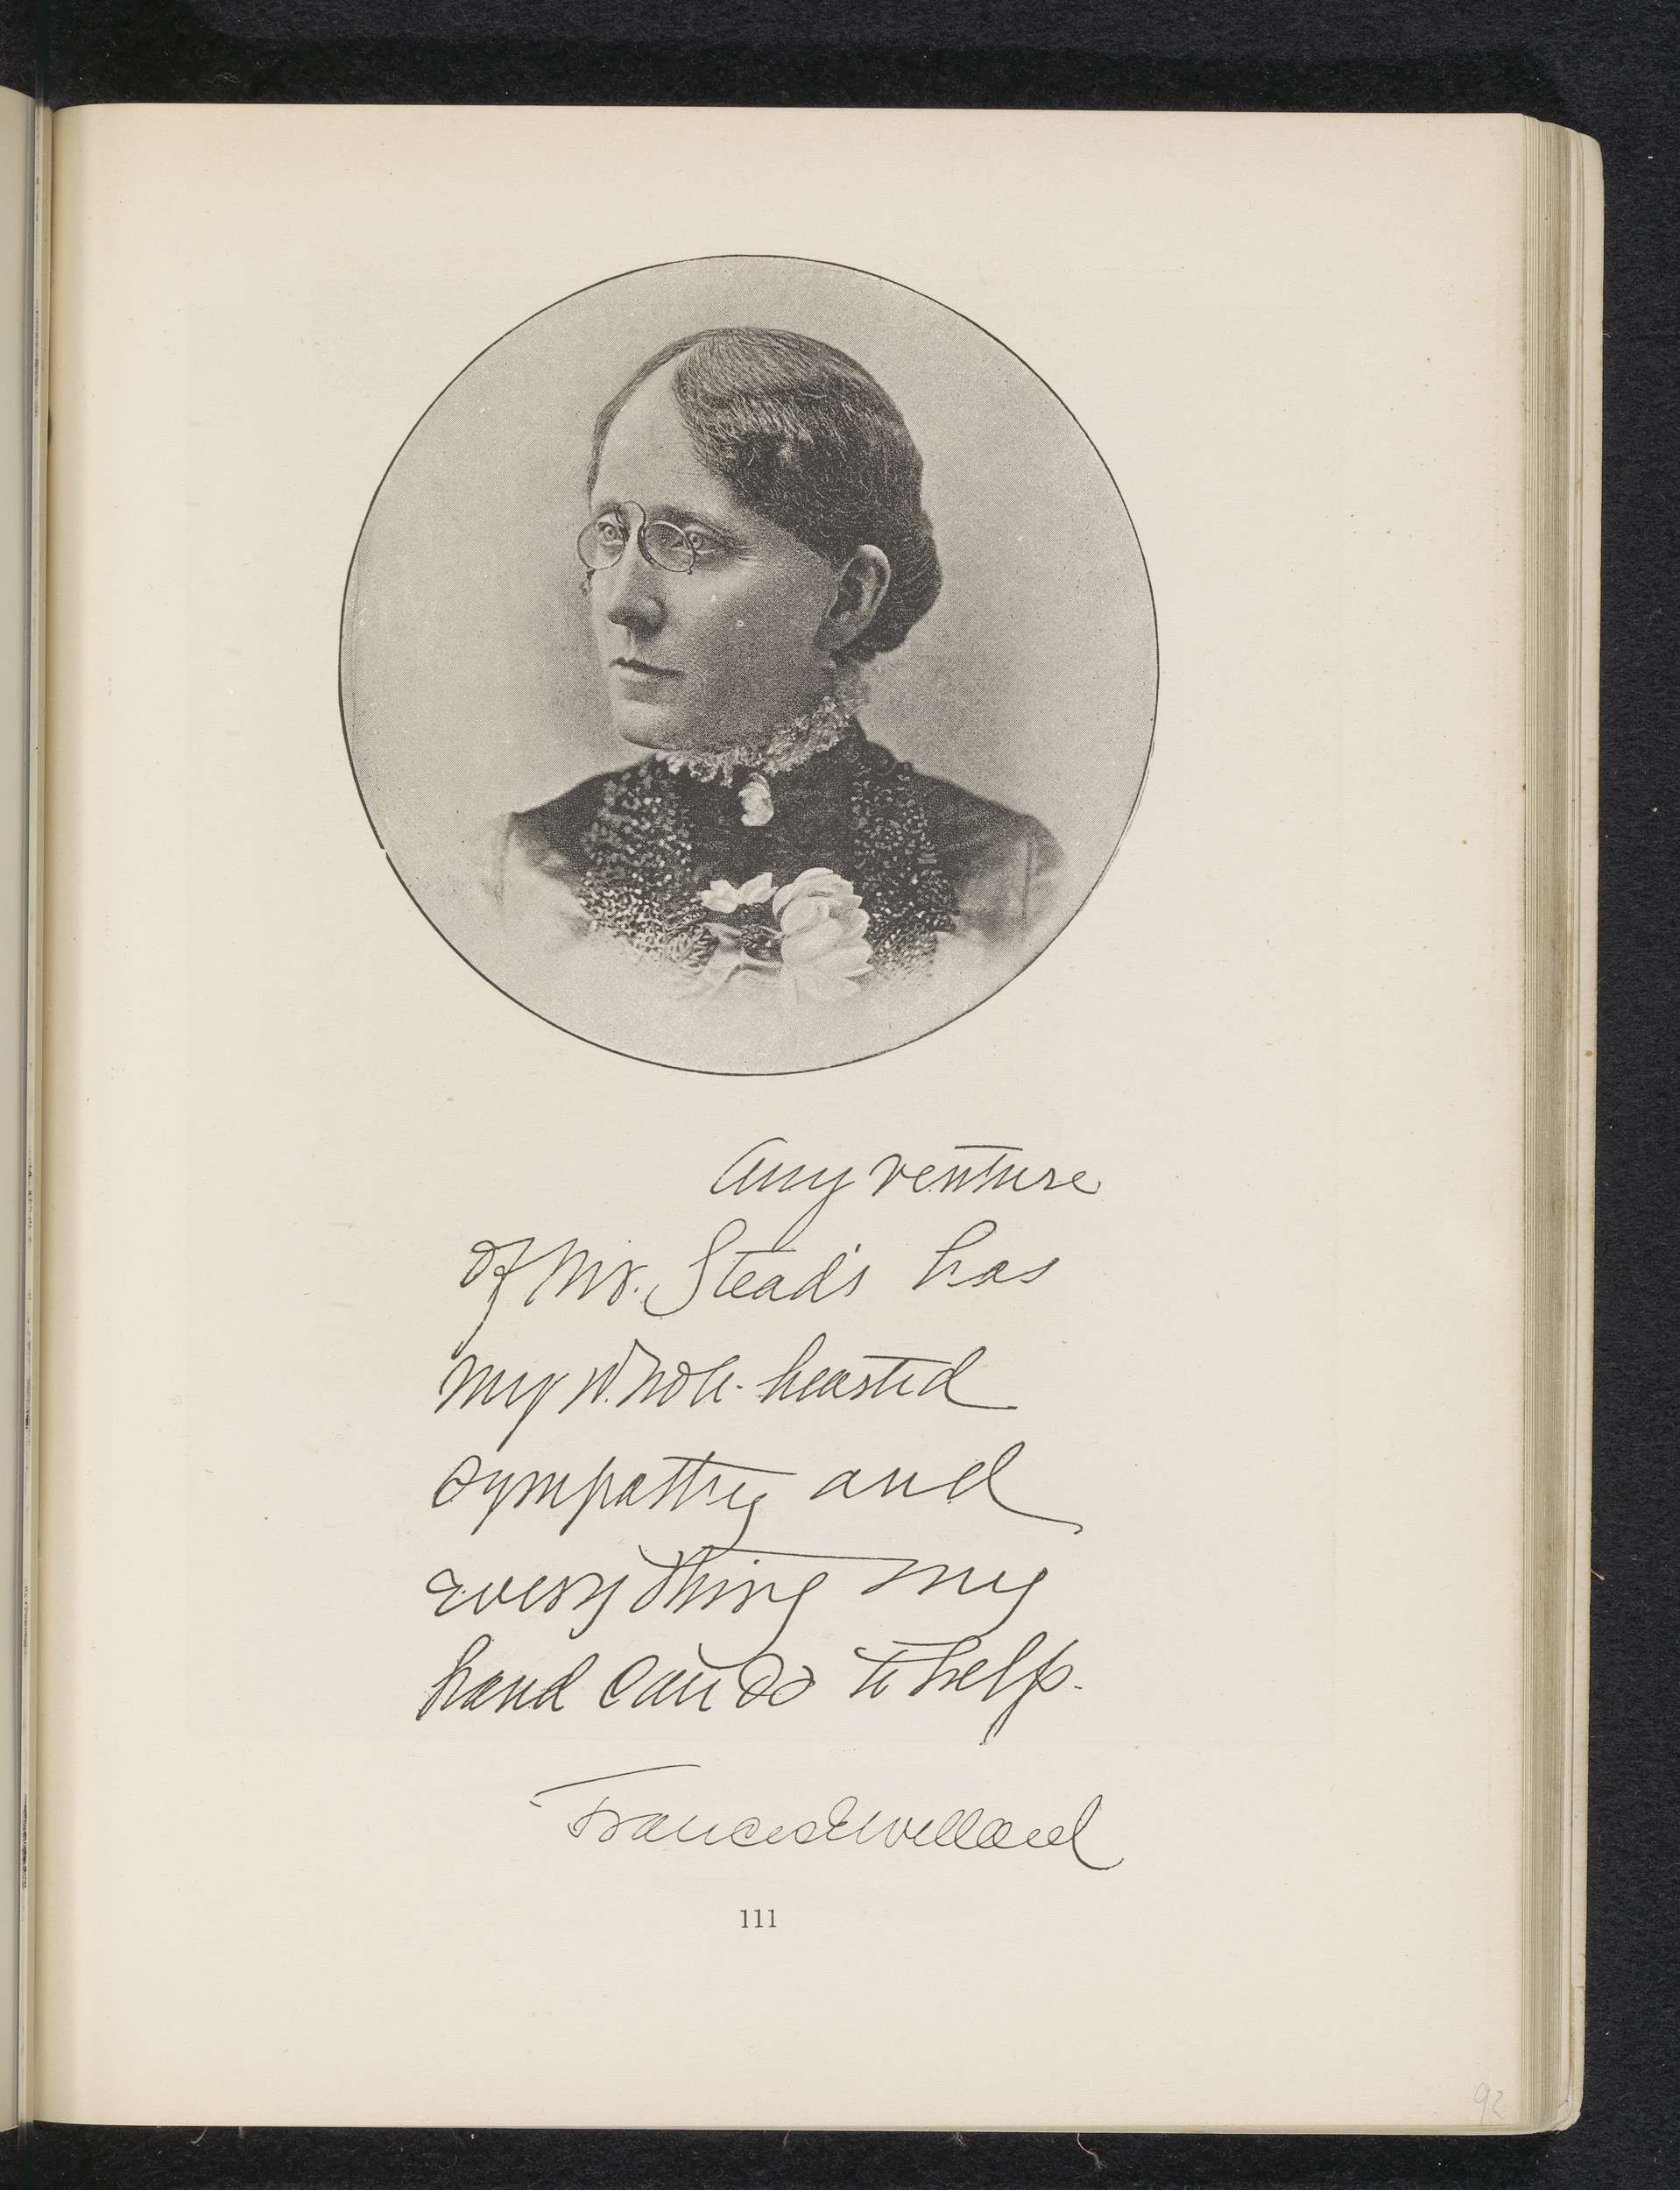 Any venture
of Mr. Stead's has
my whole-hearted
sympathy and
everything my
hand can do to help.
Frances E Willard
111
92